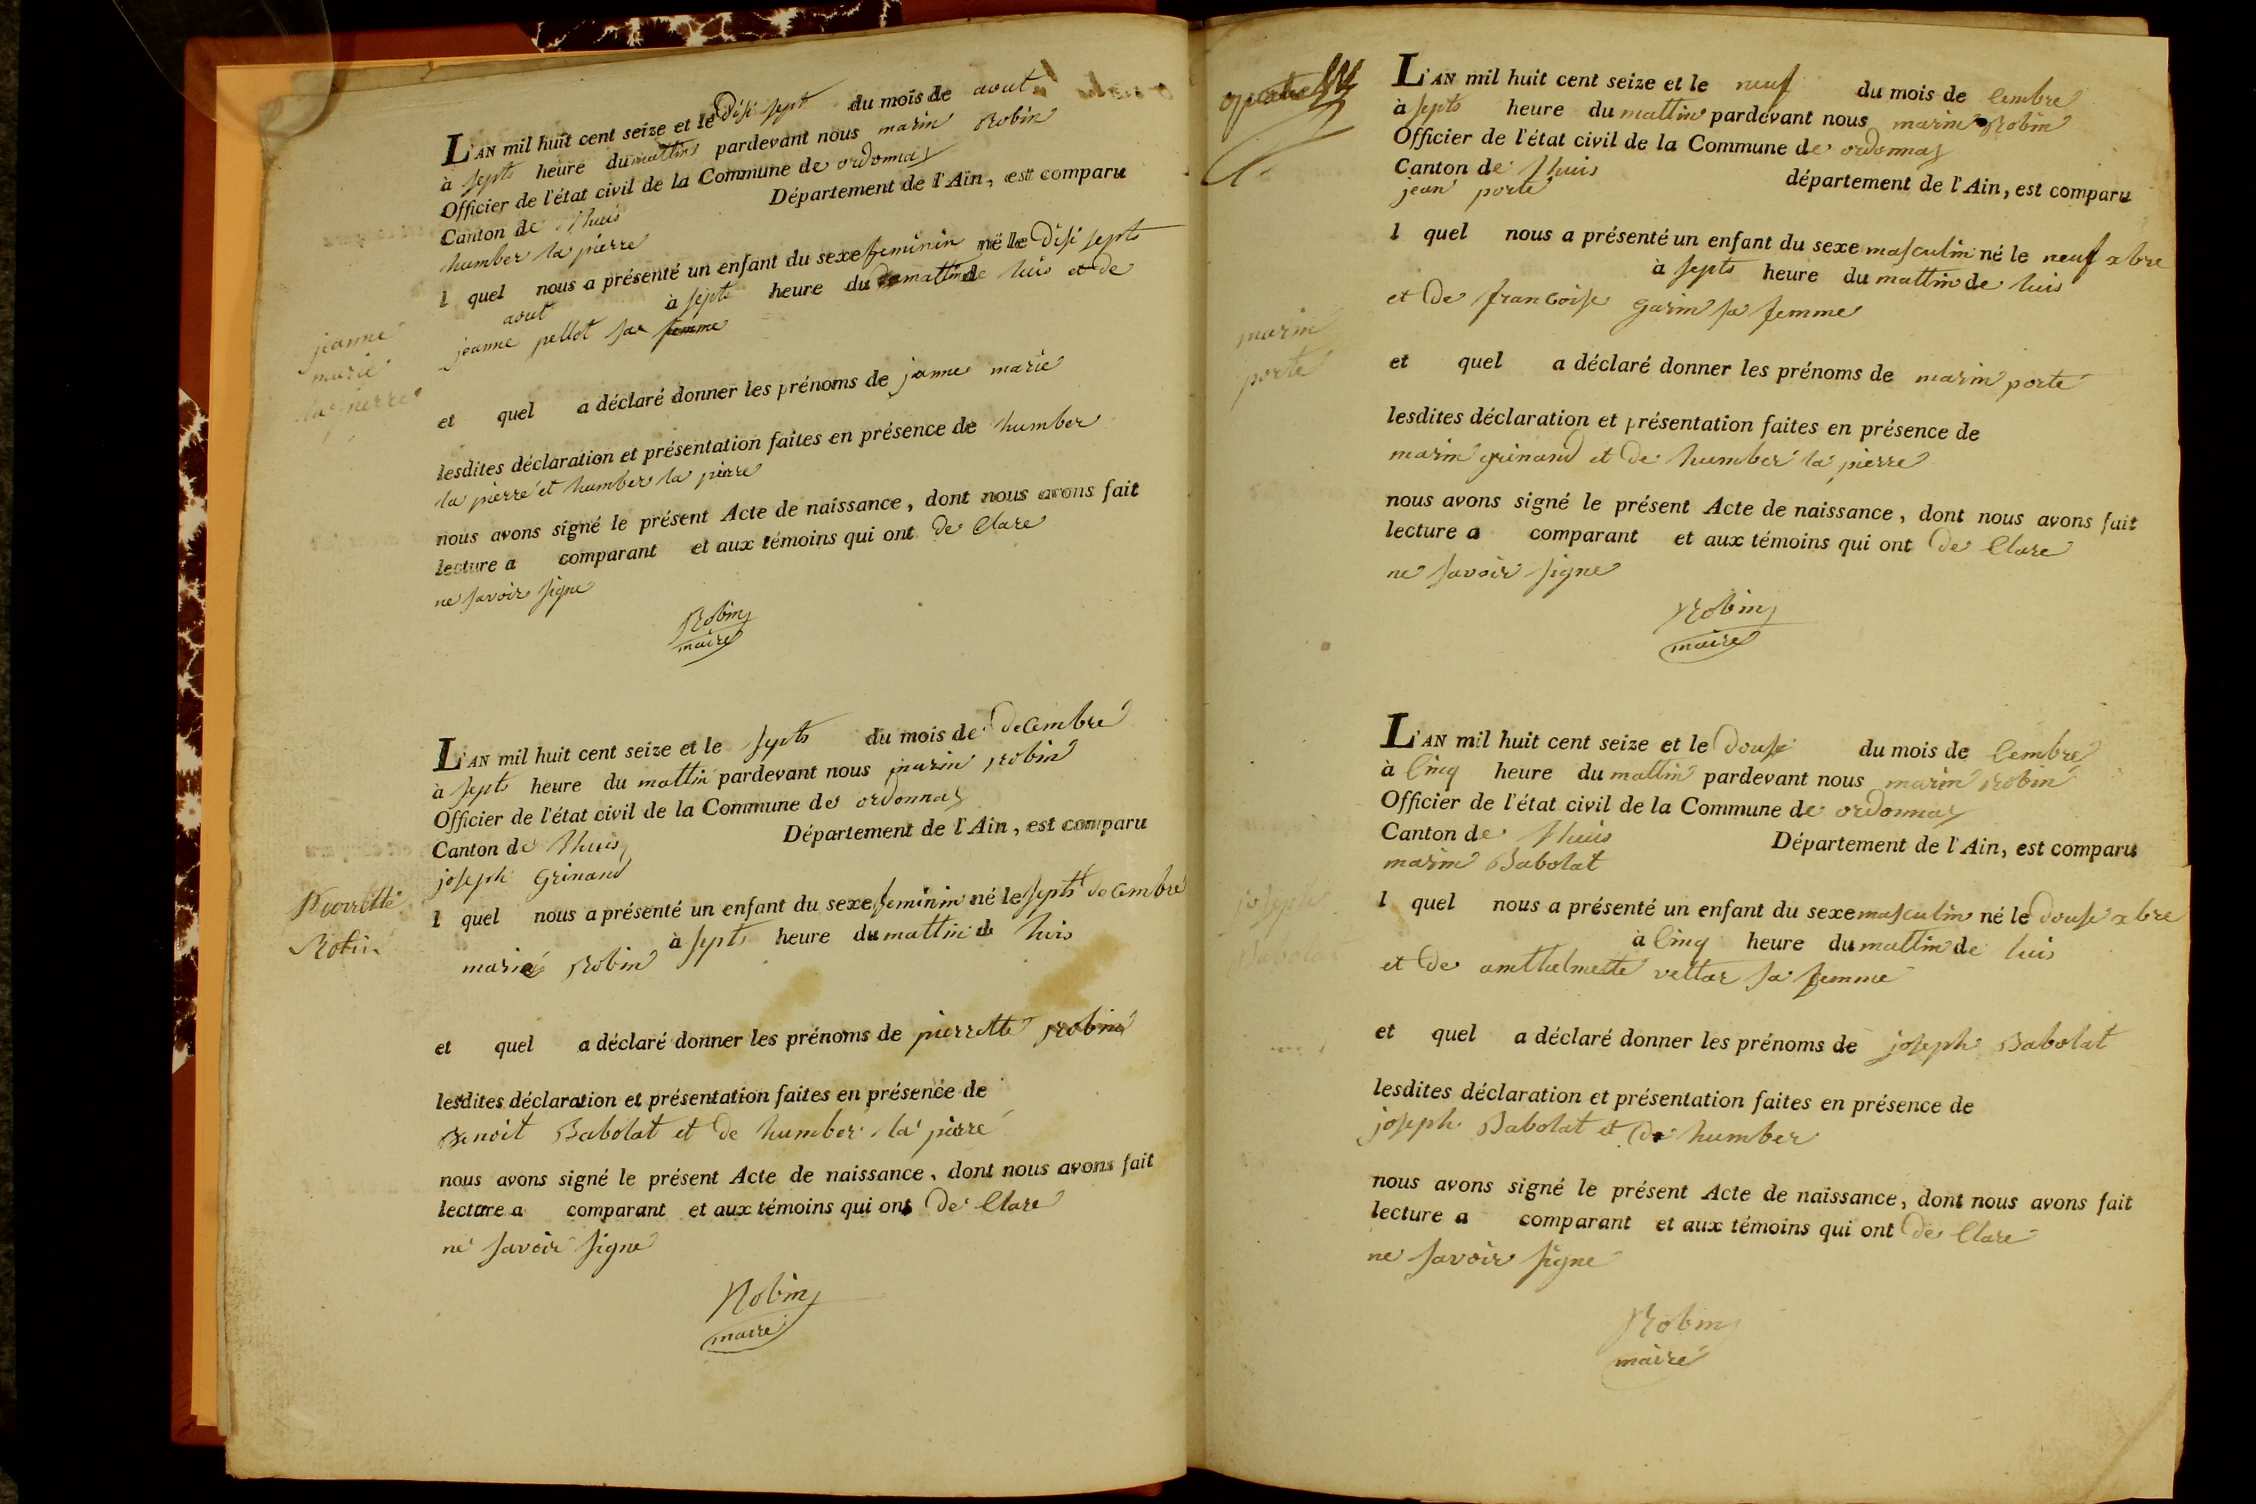 L'AN mil huit cent seize et le disi sept du mois de aout
à septs heure du mattin pardevant nous marin Robin
Officier de l'état civil de la Commune de ordonnaz
Canton de Lhuis Département de l'Ain, est comparu
humber la pierre
l quel nous a présenté un enfant du sexe feminin né le disi septs
aout à septs heure du mattin de luis et de
jeanne pellot sa femme
jeanne
marie
la pierre
et quel a déclaré donner les prénoms de janne marie
lesdites déclaration et présentation faites en présence de humber
la pierre et humber la pierre
nous avons signé le présent Acte de naissance, dont nous avons fait
lecture a comparant et aux témoins qui ont de Clare
ne savoir signe
Robin
maire
L'AN mil huit cent seize et le septs du mois de deCembre
à septs heure du mattin pardevant nous marin Robin
Officier de l'état civil de la Commune de ordonnaz
Canton de Lhuis Département de l'Ain, est comparu
joseph Grinand
l quel nous a présenté un enfant du sexe feminin né le septs deCembre
à septs heure du mattin de luis
marie Robin
Pierrette
Robin
et quel a déclaré donner les prénoms de pierrette Robin
lesdites déclaration et présentation faites en présence de
Benoit Babolat et de humber la pierre
nous avons signé le présent Acte de naissance, dont nous avons fait
lecture a comparant et aux témoins qui ont de Clare
ne savoir signe
Robin
maire
L'AN mil huit cent seize et le neuf du mois de Cembre
à septs heure du mattin pardevant nous marin Robin
Officier de l'état civil de la Commune de ordonnaz
Canton de Lhuis département de l'Ain, est comparu
jean porte
l quel nous a présenté un enfant du sexe masculin né le neuf xbre
à septs heure du mattin de luis
et de franCoise garin sa femme
marin
porte
et quel a déclaré donner les prénoms de marin porte
lesdites déclaration et présentation faites en présence de
marin grinand et de humber la pierre
nous avons signé le présent Acte de naissance, dont nous avons fait
lecture a comparant et aux témoins qui ont de Clare
ne savoir signe
Robin
maire
L'AN mil huit cent seize et le douse du mois de Cembre
à Cinq heure du mattin pardevant nous marin Robin
Officier de l'état civil de la Commune de ordonnaz
Canton de Lhuis Département de l'Ain, est comparu
marin Babolat
l quel nous a présenté un enfant du sexe masculin né le douse xbre
à Cinq heure du mattin de luis
et de anthelmette vettar sa femme
joseph
Babolat
et quel a déclaré donner les prénoms de joseph Babolat
lesdites déclaration et présentation faites en présence de
joseph Babolat et de humber
nous avons signé le présent Acte de naissance, dont nous avons fait
lecture a comparant et aux témoins qui ont de Clare
ne savoir signe
Robin
maire